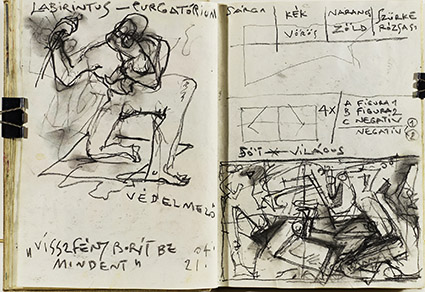 LABIRINTUS – PURGATÓRIUM
VÉDELMEZŐ
„VISSZFÉNY BORÍT BE
MINDENT"
04.
21.
SÁRGA KÉK NARANCS SZÜRKE
VÖRÖS ZÖLD RÓZSASZ
4X
A FIGURA 1
B FIGURA 2
C NEGATIV 1
NEGATIV 2
SÖTÉT VILÁGOS